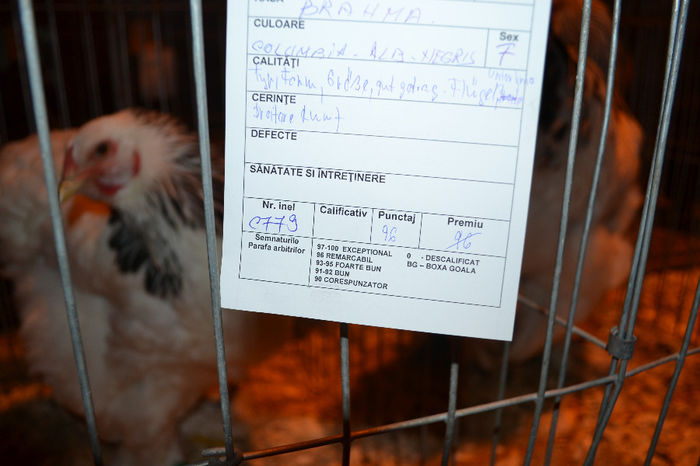 BRAHMA.
CULOARE
Sex
COLUMBIA - ALB - NEGRIS
F
CALITĂȚI
Typ, Form, Größe, gut getrag. Flügel,
CERINȚE
Breitere
DEFECTE
SĂNĂTATE SI ÎNTREȚINERE
Nr. inel
Calificativ
Punctaj
Premiu
C779
96
96
Semnaturile
Parafa arbitrilor
97-100 EXCEPTIONAL
96 REMARCABIL
93-95 FOARTE BUN
91-92 BUN
90 CORESPUNZATOR
0 - DESCALIFICAT
BG – BOXA GOALA